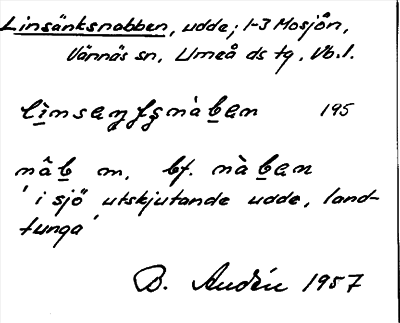 Linsänksnabben, udde; 1-3 Mosjön,
Vännäs sn, Umeå ds tg, Vb.l.
195
m. bf.
'i sjö utskjutande udde, land-
tunga'
B. Audén 1957